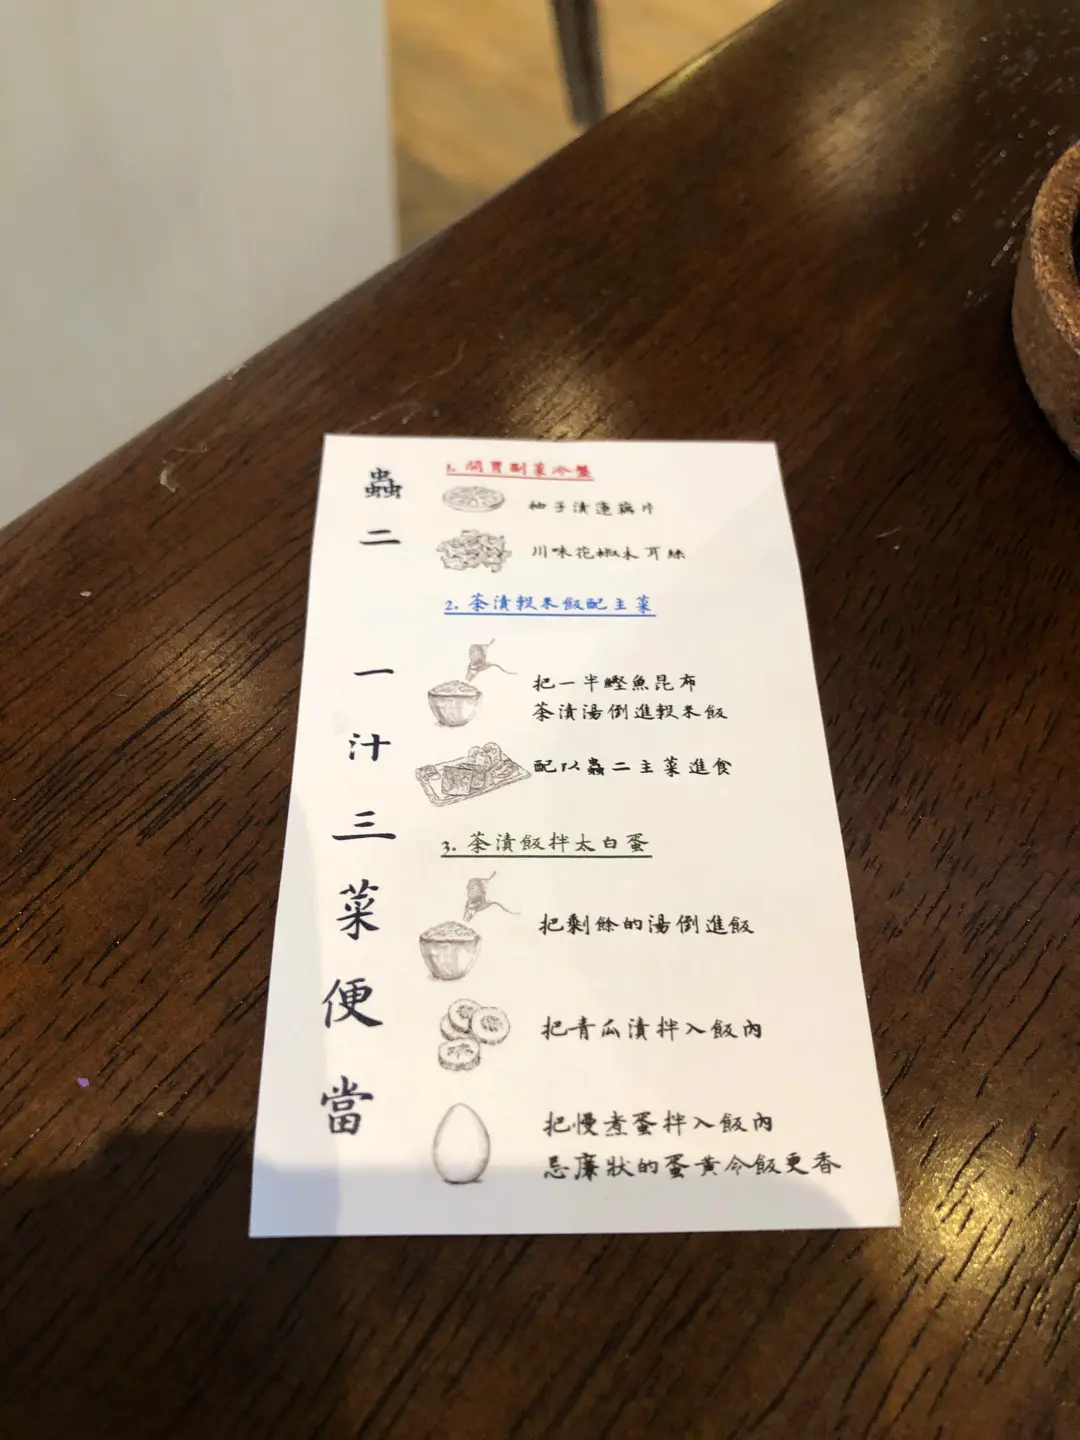 蟲二
一汁三菜便當
1. 開胃副菜冷盤
柚子漬蓮藕片
川味花椒木耳絲
2. 茶漬穀米飯配主菜
把一半鰹魚昆布
茶漬湯倒進穀米飯
配以蟲二主菜進食
3. 茶漬飯拌太白蛋
把剩餘的湯倒進飯
把青瓜漬拌入飯內
把慢煮蛋拌入飯內
忌廉狀的蛋黃令飯更香